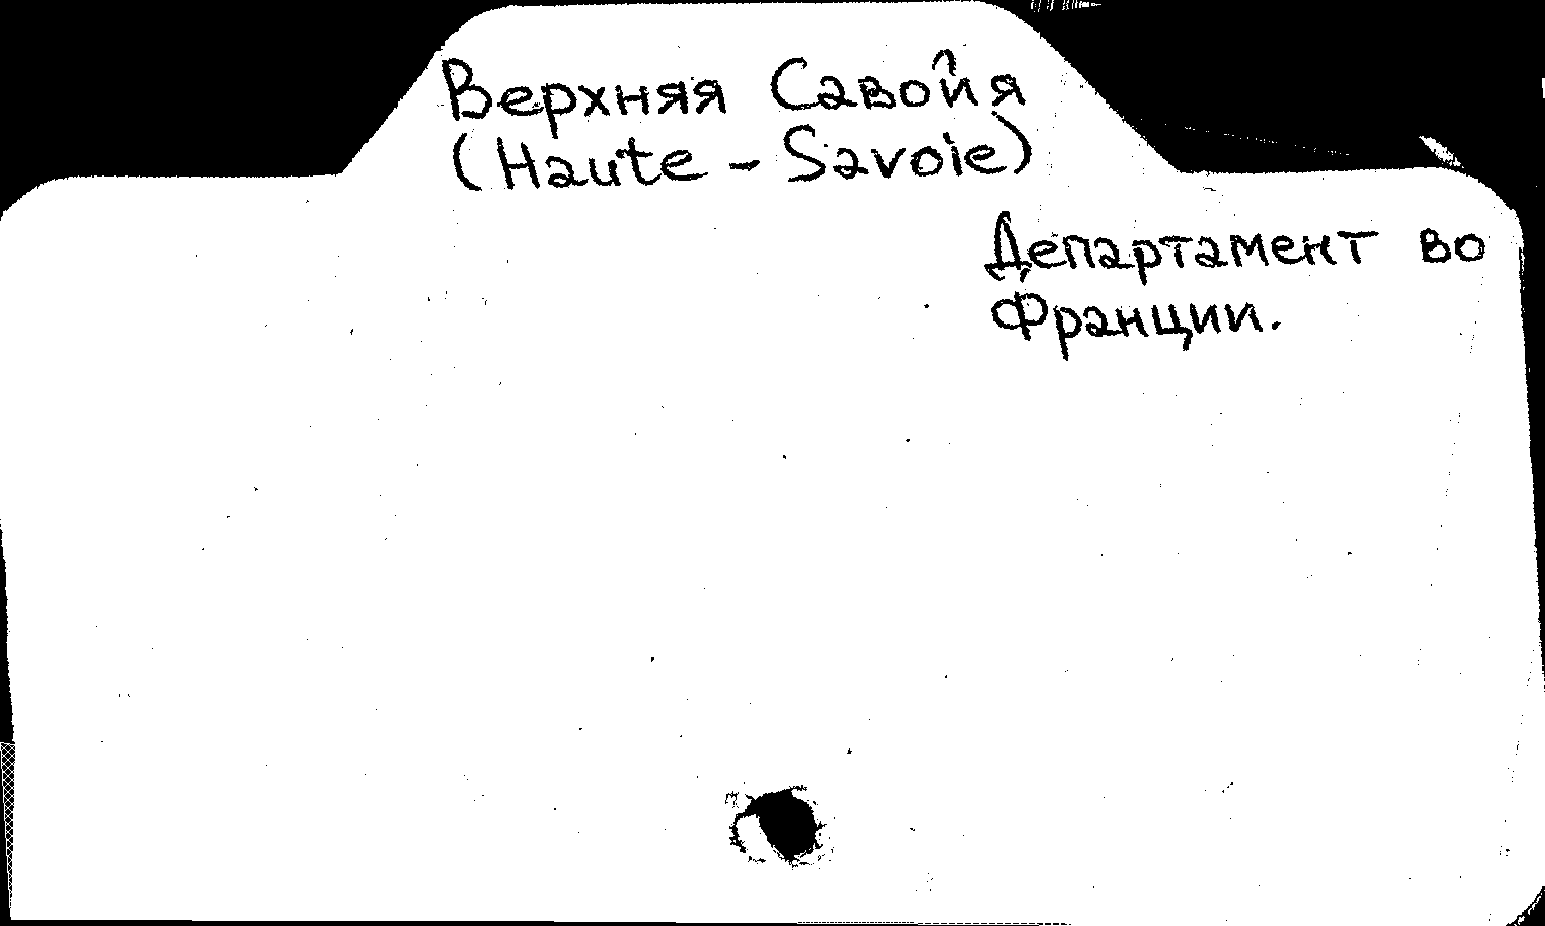 Верхняя Савойя
(Haute - Savoie)
Департамент во
Франции.